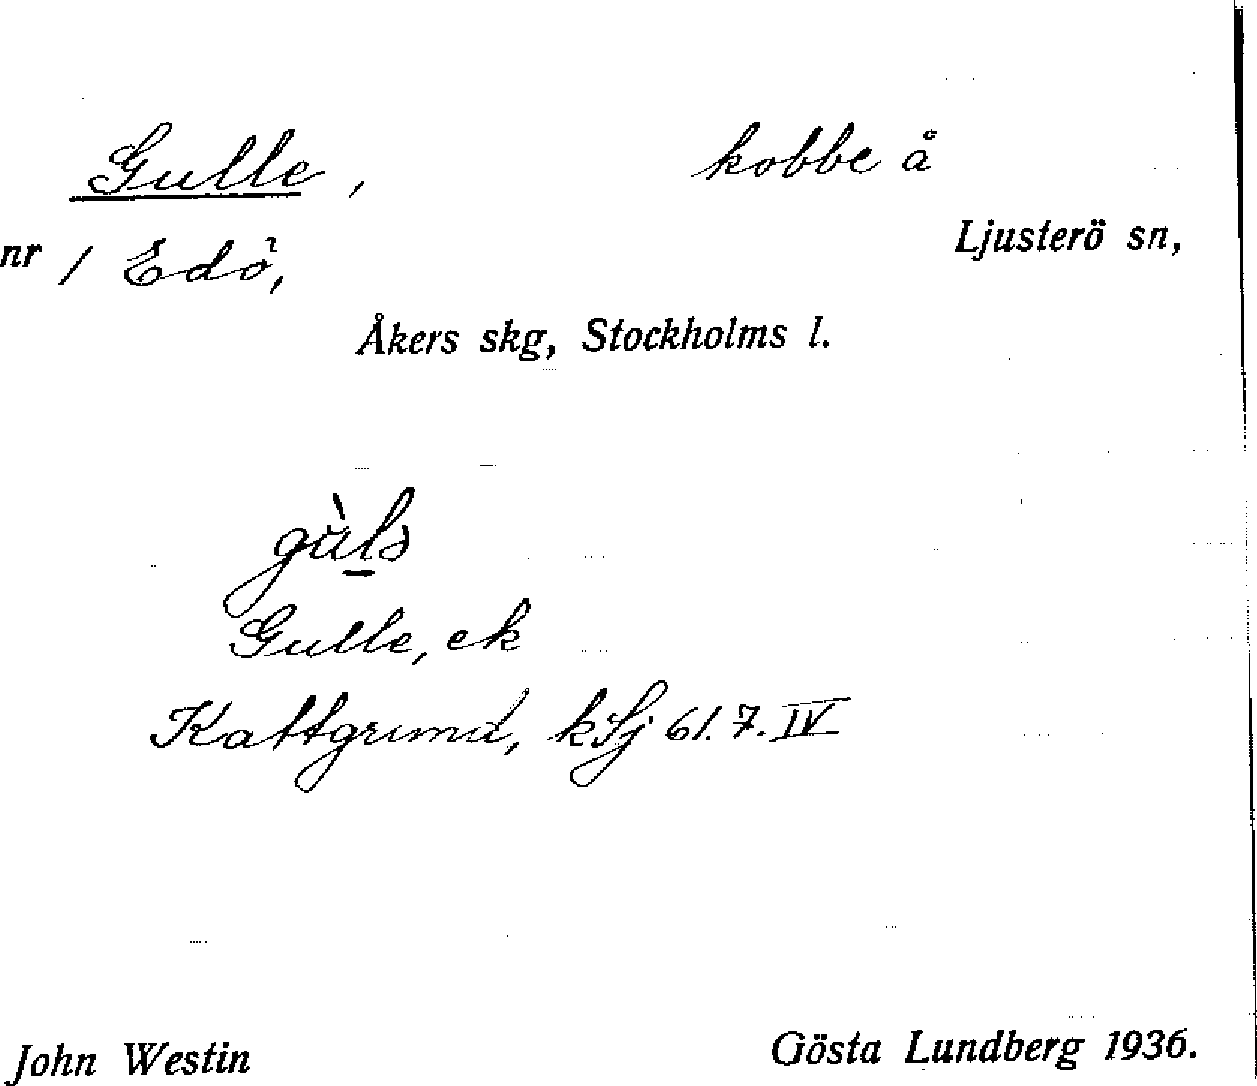 Gulle, kobbe å
nr 1 Edö, Ljusterö sn,
Åkers skg, Stockholms l.
Gulle, ek
Kattgrund, kSj 61.7.IV
John Westin Gösta Lundberg 1936.